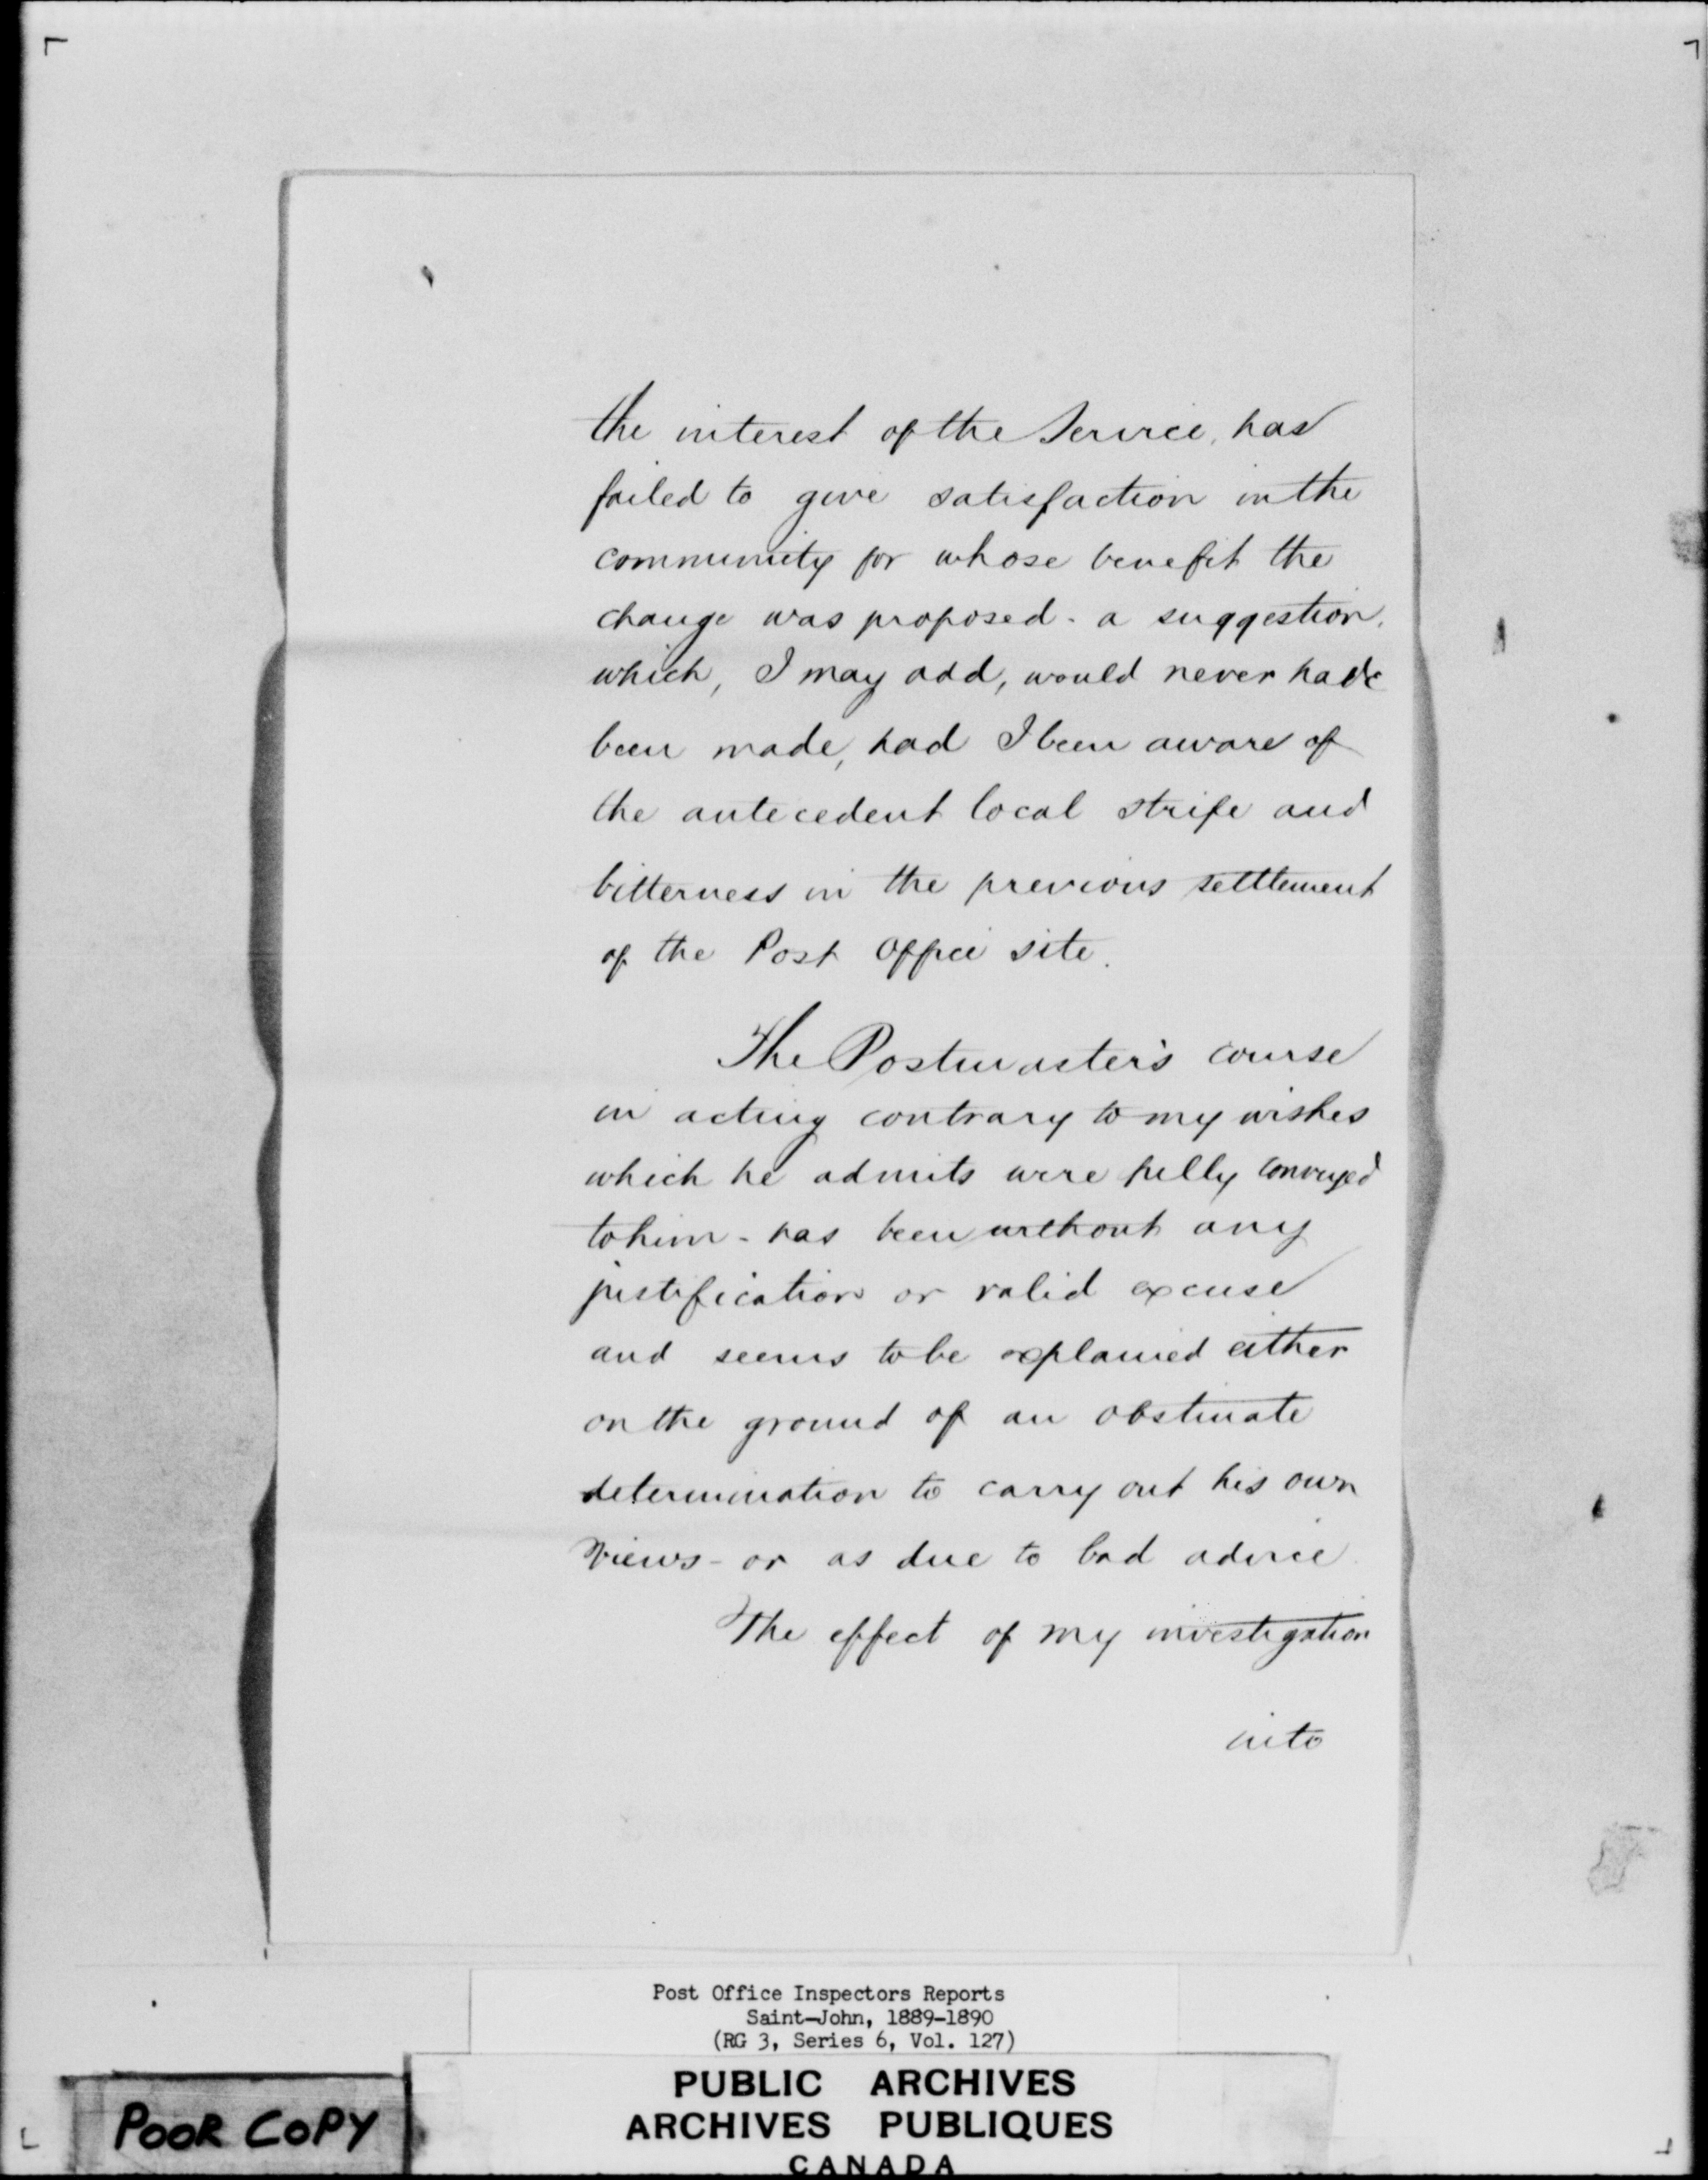 the interest of the Service, has
failed to give satisfaction in the
community for whose benefit the
change was proposed - a suggestion,
which, I may add, would never have
been made, had I been aware of
the antecedent local strife and
bitterness in the previous settlement
of the Post Office site.
The Postmaster's course
in acting contrary to my wishes
which he admits were fully conveyed
to him - has been without any
justification or valid excuse
and seems to be explained either
on the ground of an obstinate
determination to carry out his own
views - or as due to bad advice
The effect of my investigation
into
Post Office Inspectors Reports
Saint-John, 1889-1890
(RG 3, Series 6, Vol. 127)
PUBLIC ARCHIVES
ARCHIVES PUBLIQUES
CANADA
POOR COPY